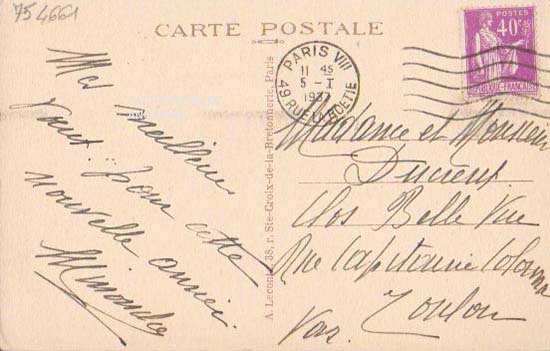 754661
CARTE POSTALE
Mes
meilleurs
vœux pour cette
nouvelle année.
A. Leconte, 38, r. Ste-Croix-de-la-Bretonnerie, Paris
PARIS VIII
11 45
5 - I
1937
49 RUE LA BOETIE
POSTES
40c
RÉPUBLIQUE FRANÇAISE
Madame et Monsieur
Clos Belle Vue
Rue Capitaine
Toulon
Var.